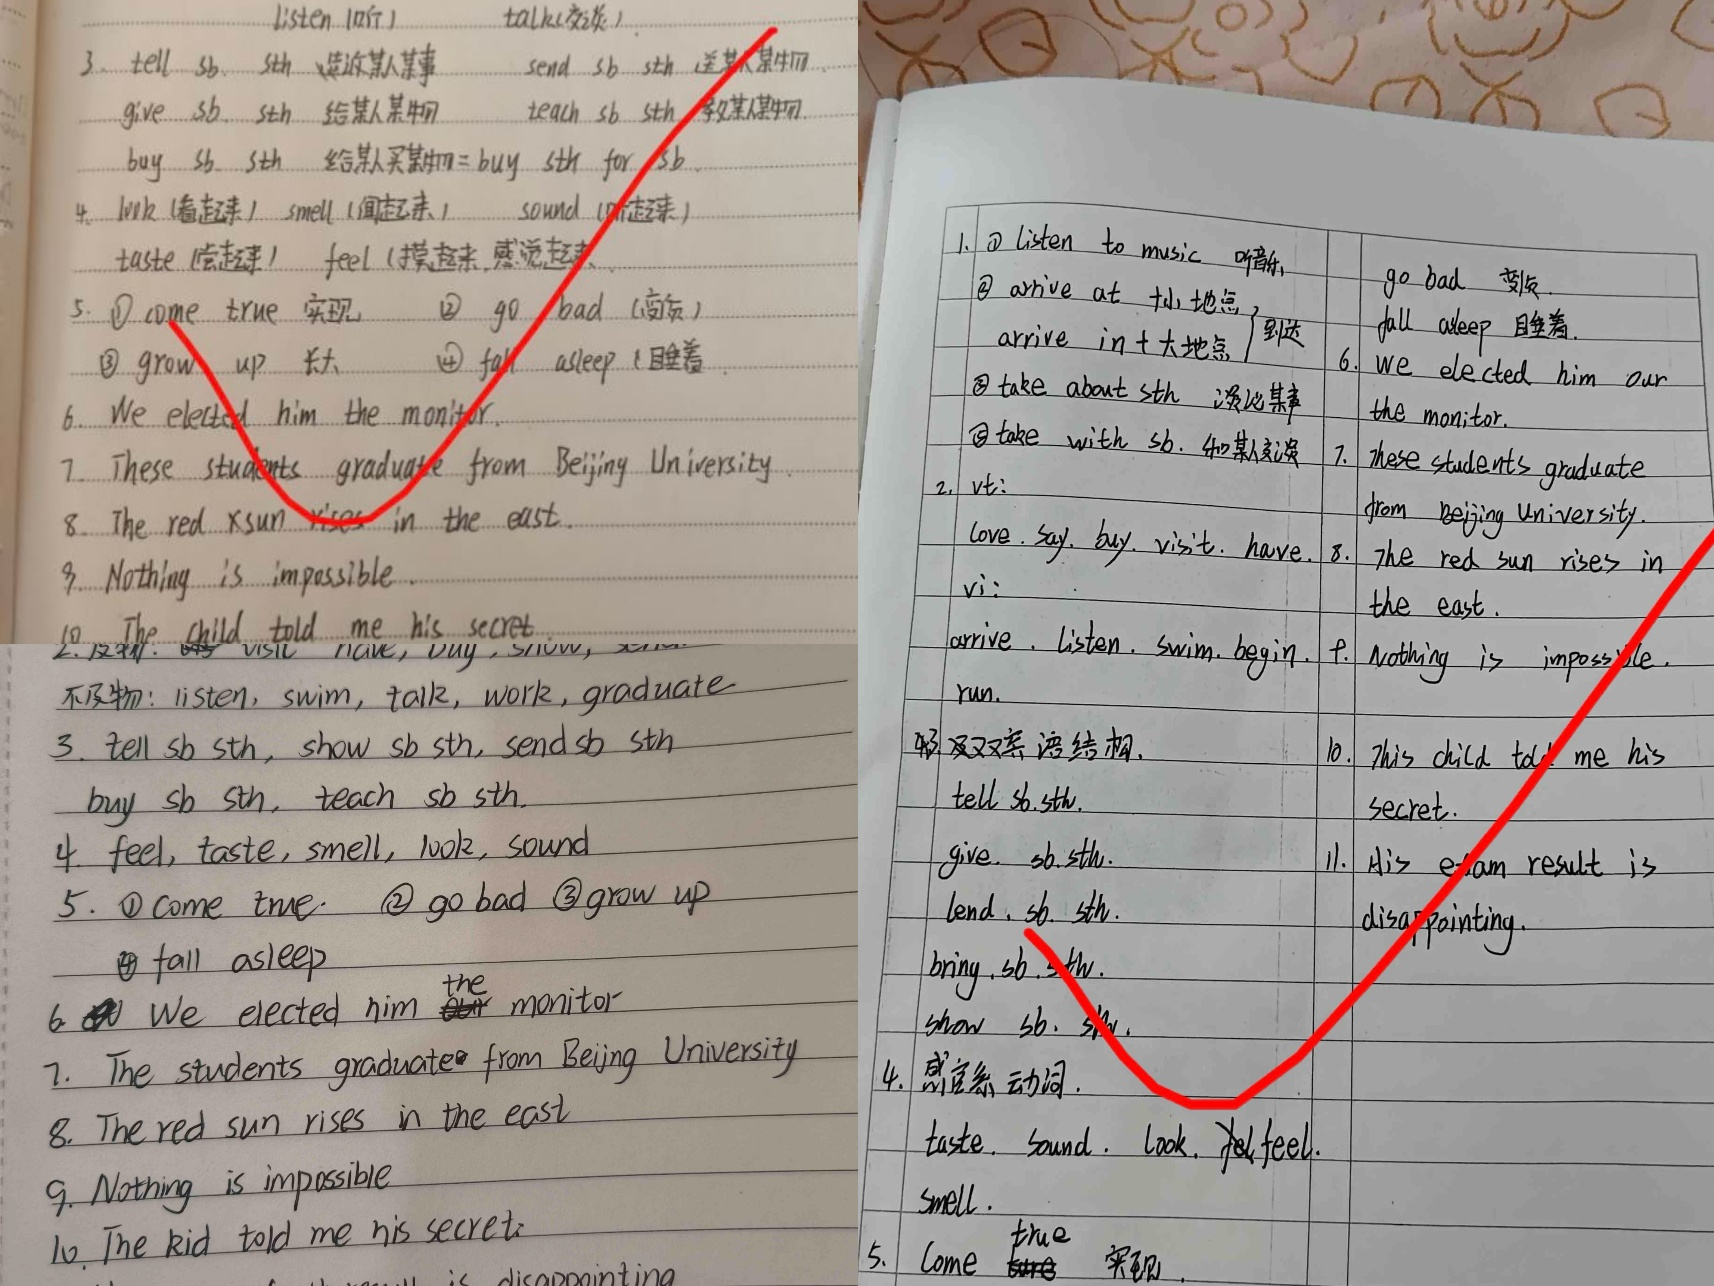 listen (听) talk (交谈)
3. tell sb. sth 告诉某人某事 send sb sth 送某人某物
give sb. sth 给某人某物 teach sb sth 教某人某物
buy sb sth 给某人买某物=buy sth for sb.
4. look (看起来) smell (闻起来) sound (听起来)
taste (尝起来) feel (摸起来 感觉起来
5. ① come true 实现 ② go bad (变质)
③ grow up 长大 ④ fall asleep (睡着
6. We elected him the monitor.
7. These students graduate from Beijing University.
8. The red sun rises in the east.
9. Nothing is impossible.
10. The child told me his secret
2. 及物: visit have, buy, show, send.
不及物: listen, swim, talk, work, graduate
3. tell sb sth, show sb sth, send sb sth
buy sb sth, teach sb sth.
4. feel, taste, smell, look, sound
5. ① come true. ② go bad ③ grow up
④ fall asleep
6. We elected him the monitor
7. The students graduate from Beijng University
8. The red sun rises in the east
9. Nothing is impossible
10. The kid told me his secret.
is disappointing
1. ① listen to music 听音乐
② arrive at +小地点,
arrive in +大地点 到达
③ take about sth 谈论某事
③ take with sb. 和某人交谈
2. vt:
love. say. buy. visit. have.
vi:
arrive. listen. swim. begin.
run.
3. 双宾语结构.
tell sb. sth.
give. sb. sth.
lend. sb. sth.
bring. sb. sth.
show sb. sth.
4. 感官系动词.
taste. sound. look. feel.
smell.
5. Come true 实现.
go bad 变质.
fall asleep 睡着.
6. We elected him our
the monitor.
7. These students graduate
from Beijing University.
8. The red sun rises in
the east.
9. Nothing is impossible.
10. This child told me his
secret.
11. His exam result is
disappointing.